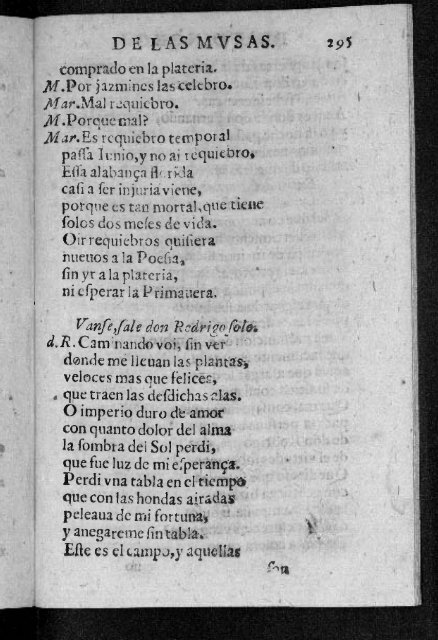 DE LAS MVSAS. 295
comprado en la plateria.
M. Por jazmines las celebro.
Mar. Mal requiebro.
M. Porque mal?
Mar. Es requiebro temporal
passa Iunio, y no ai requiebro,
Essa alabança florida
casi a ser injuria viene,
porque es tan mortal, que tiene
solos dos meses de vida.
Oir requiebros quisiera
nueuos a la Poesia,
sin yr a la plateria,
ni esperar la Primauera.
Vanse, sale don Rodrigo solo.
d. R. Caminando voi, sin ver
donde me lleuan las plantas,
veloces mas que felices,
que traen las desdichas alas.
O imperio duro de amor
con quanto dolor del alma
la sombra del Sol perdi,
que fue luz de mi esperança.
Perdi vna tabla en el tiempo
que con las hondas airadas
peleaua de mi fortuna,
y anegareme sin tabla.
Este es el campo, y aquellas
son